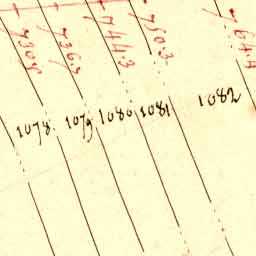 7305 7365 7443 7503 7644
1078 1079 1080 1081 1082